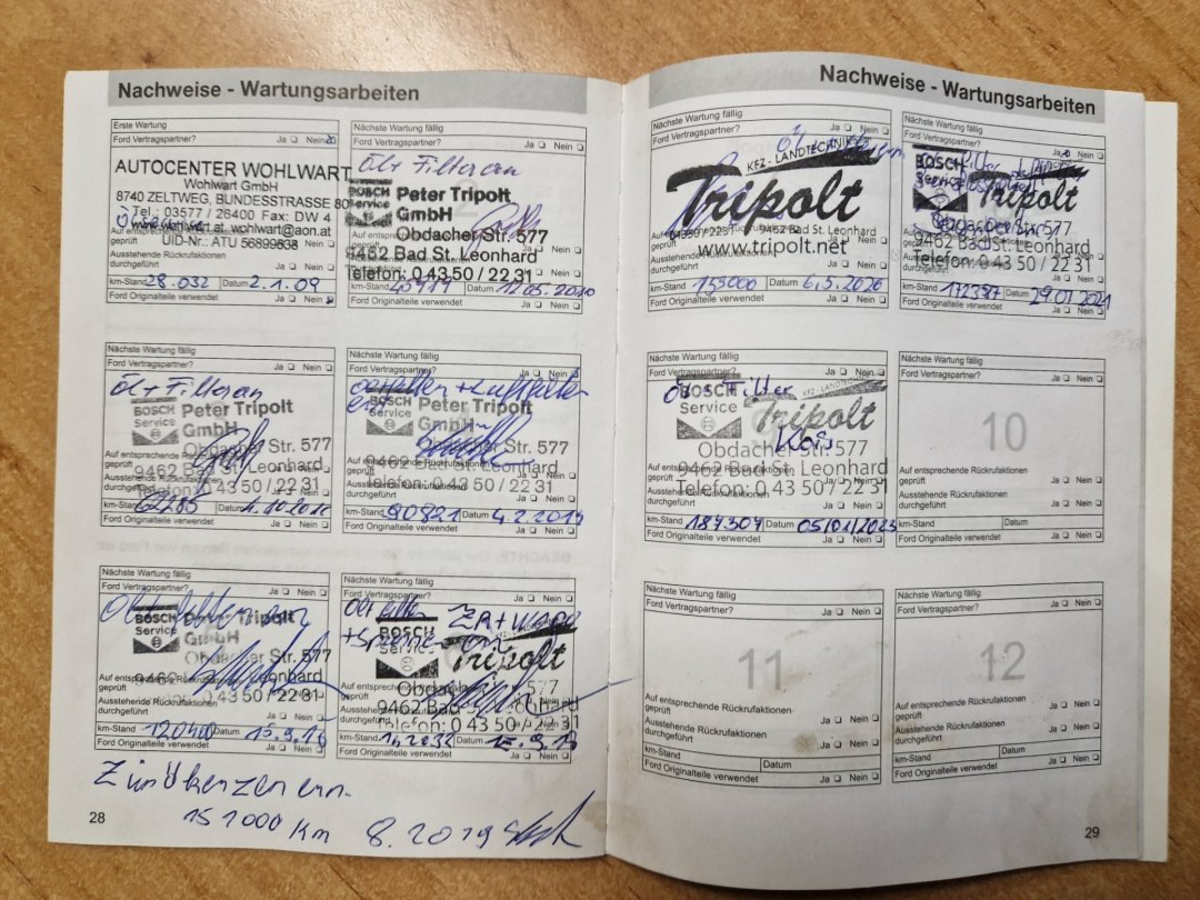 Nachweise - Wartungsarbeiten
Erste Wartung
Ford Vertragspartner? Ja Nein
AUTOCENTER WOHLWART
Wohlwart GmbH
8740 ZELTWEG, BUNDESSTRASSE 80
Tel.: 03577 / 26400 Fax: DW 4
www.wohlwart.at, wohlwart@aon.at
UID-Nr.: ATU 56899638
geprüft Nein
Ausstehende Rückrufaktionen
durchgeführt Ja Nein
km-Stand 28.032 Datum 2.1.09
Ford Originalteile verwendet Ja Nein
Nächste Wartung fällig
Ford Vertragspartner? Ja Nein
Öl + Filter
BOSCH Service
Peter Tripolt
GmbH
Obdacher Str. 577
9462 Bad St. Leonhard
Telefon: 0 43 50 / 22 31
durchgeführt Ja Nein
km-Stand Datum
Ford Originalteile verwendet Ja Nein
Nächste Wartung fällig
Ford Vertragspartner? Ja Nein
Öl + Filter
BOSCH Service
Peter Tripolt
GmbH
Obdacher Str. 577
Auf entsprechende
geprüft
9462 Bad St. Leonhard
Telefon: 0 43 50 / 22 31
durchgeführt
km-Stand Datum
Ford Originalteile verwendet Ja Nein
Nächste Wartung fällig
Ford Vertragspartner? Ja Nein
+ Luftfilter
BOSCH Service
Peter Tripolt
GmbH
Obdacher Str. 577
9462 Bad St. Leonhard
Telefon: 0 43 50 / 22 31
durchgeführt Ja Nein
km-Stand 90821 Datum
Ford Originalteile verwendet Ja Nein
Nächste Wartung fällig
Ford Vertragspartner? Ja Nein
BOSCH Service
Tripolt
GmbH
Obdacher Str. 577
Auf entsprechende
geprüft
Leonhard
43 50 / 22 31
Ausstehende Rückrufaktionen
durchgeführt Ja Nein
km-Stand 120400 Datum
Ford Originalteile verwendet Ja Nein
Nächste Wartung fällig
Ford Vertragspartner?
ZR + WAPU
BOSCH Service
Tripolt
577
9462 Bad
Telefon: 0 43 50 / 22 31
durchgeführt
km-Stand Datum
Ford Originalteile verwendet Ja Nein
Zündkerzen ern.
151000 Km 8.2019
28
Nachweise - Wartungsarbeiten
Nächste Wartung fällig
Ford Vertragspartner? Ja Nein
KFZ - LANDTECHNIK
Tripolt
04350 / 223 9462 Bad St. Leonhard
www.tripolt.net
Ausstehende Rückrufaktionen
durchgeführt Ja Nein
km-Stand 153000 Datum 6.5.2020
Ford Originalteile verwendet Ja Nein
Nächste Wartung fällig
Ford Vertragspartner? Ja
BOSCH Service
Tripolt
Obdacher Str. 577
9462 Bad St. Leonhard
Telefon: 0 43 50 / 22 31
durchgeführt Ja Nein
km-Stand Datum 29.01.2021
Ford Originalteile verwendet Ja Nein
Nächste Wartung fällig
Ford Vertragspartner? Ja Nein
Öl + Filter
BOSCH Service
KFZ - LANDTECHNIK
Tripolt
Obdacher Str. 577
9462 Bad St. Leonhard
Telefon: 0 43 50 / 22 31
durchgeführt Ja Nein
km-Stand 187307 Datum 05/01/2023
Ford Originalteile verwendet Ja Nein
Nächste Wartung fällig
Ford Vertragspartner? Ja Nein
10
Auf entsprechende Rückrufaktionen
geprüft Ja Nein
Ausstehende Rückrufaktionen
durchgeführt Ja Nein
km-Stand Datum
Ford Originalteile verwendet Ja Nein
Nächste Wartung fällig
Ford Vertragspartner? Ja Nein
11
Auf entsprechende Rückrufaktionen
geprüft Ja Nein
Ausstehende Rückrufaktionen
durchgeführt Ja Nein
km-Stand Datum
Ford Originalteile verwendet Ja Nein
Nächste Wartung fällig
Ford Vertragspartner? Ja Nein
12
Auf entsprechende Rückrufaktionen
geprüft Ja Nein
Ausstehende Rückrufaktionen
durchgeführt Ja Nein
km-Stand Datum
Ford Originalteile verwendet Ja Nein
29